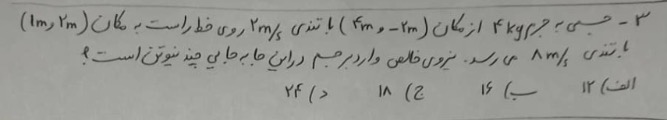 ۳- جسمی به جرم ۴kg از مکان (۴m و -۲m) با تندی ۲m/s روی خط راست به مکان (۱m و ۲m)
با تندی ۸m/s می رسد. نیروی خالص وارد بر جسم در این جا به جایی چند نیوتن است؟
الف) ۱۲ ب) ۱۶ ج) ۱۸ د) ۲۴